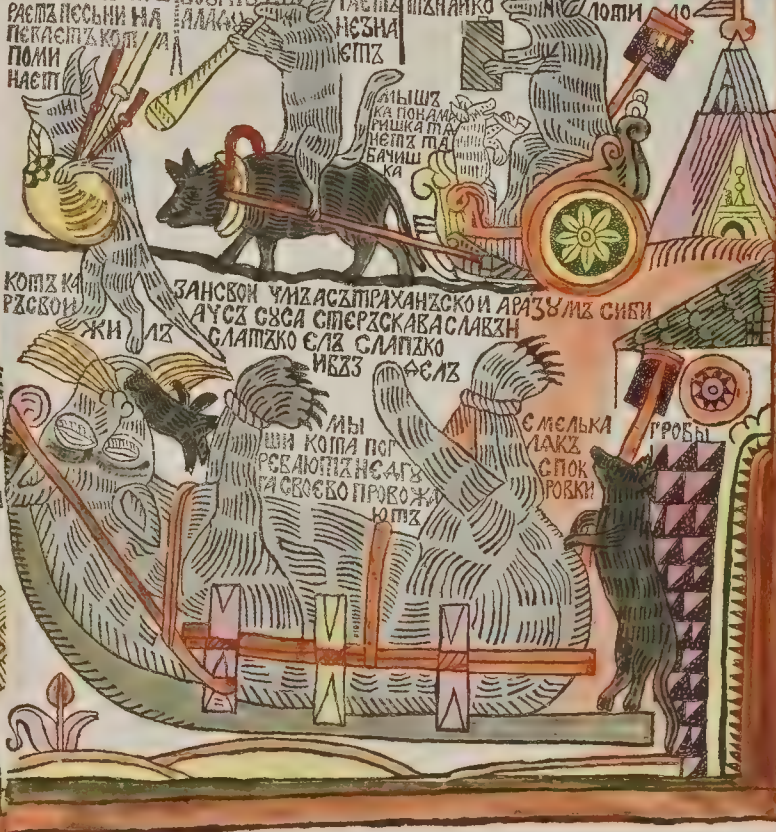 РАЕТЪ ПЕСЬНИ НА
ПЕВАЕТЪ КОТА
ПОМИ
НАЕТ
НЕЗНА
ЕТЪ
МЫШЪ
КА ПОНАМ
РИШКА ТА
НЕТЪ ТА
БАЧИШ
КА
КОТЪ КА
ЗАНСКОИ УМЪ АСЪТРАХАНЪСКОИ АРАЗУМЪ СИБИ
РЪСКОИ
АУСЪ СУСА СТЕРЪСКАВА СЛАВЪН
ЖИЛЪ
СЛАТЪКО ЕЛЪ СЛАПЪКО
ИБЪЗДЕЛЪ
МЫ
ШИ КОТА ПОГ
РЕБАЮТЪ НЕДРУ
ГА СВОЕВО ПРОВОЖА
ЮТЪ
ЕМЕЛЬКА
ЛАКЪ
СПОК
РОВКИ
ГРОБЫ